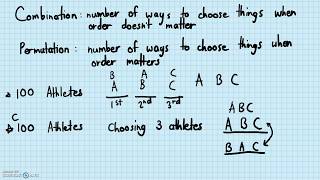 Combination: number of ways to choose things when
order doesn't matter
Permutation: number of ways to choose things when
order matters
B A C
100 Athletes A B C A B C
1st 2nd 3rd
C
100 Athletes Choosing 3 athletes
A B C
A B C
B A C